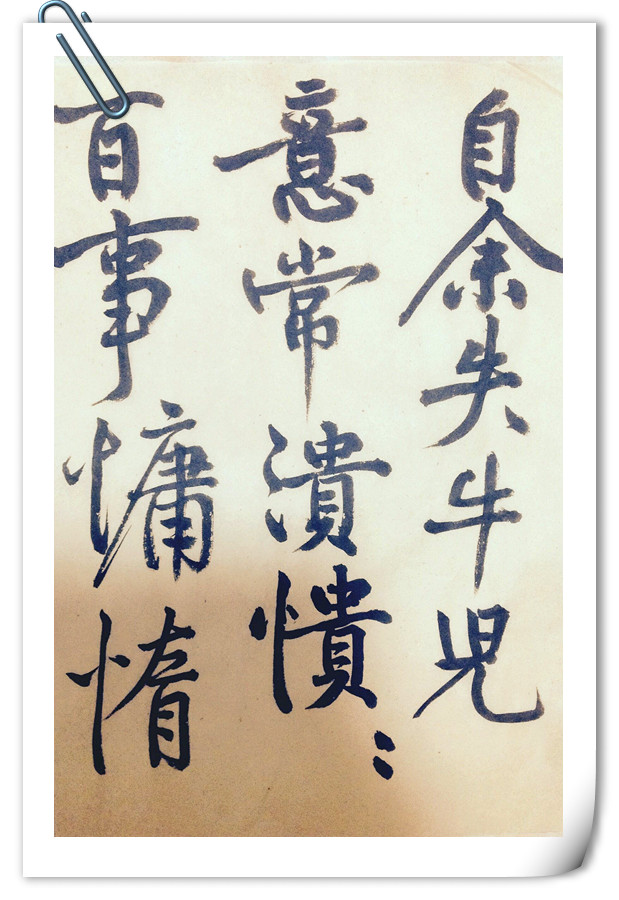 自余失牛児
意常潰憒〻
百事慵惰